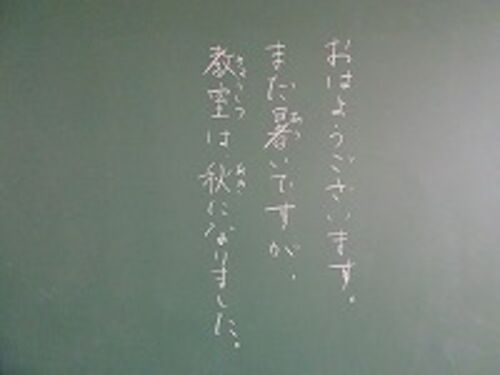 おはようございます。
まだ暑いですが、
教室は秋になりました。